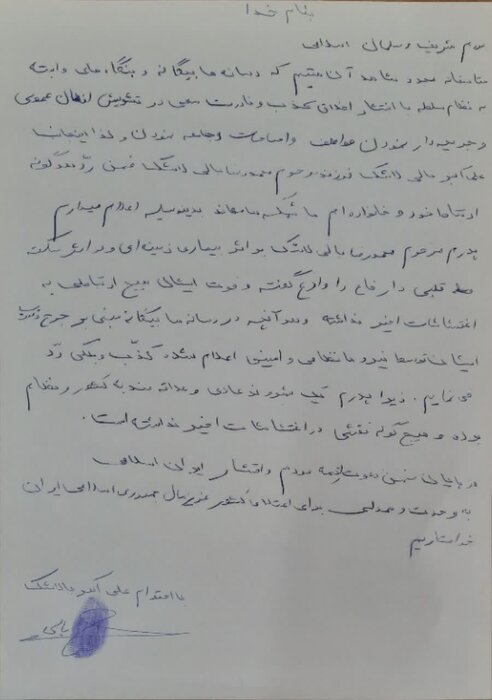 بنام خدا
مردم شریف و مسلمان اسلامی
متاسفانه مدتی شاهد آن هستیم که رسانه های بیگانه و بنگاه های وابسته
به نظام سلطه با انتشار اخباری کذب و نادرست سعی در تشویش اذهان عمومی
و جریحه دار نمودن عواطف و احساسات جامعه نمودن و لذا اینجانب
علی اکبر مالی لاشک فرزند مرحوم محمدرضا مالی لاشک ضمن رد هرگونه
ارتباط خود و خانواده ام با شبکه معاند بدینوسیله اعلام میدارم
پدرم مرحوم محمدرضا مالی لاشک بر اثر بیماری زمینه ای و در اثر سکته
قلبی دار فانی را وداع گفته و فوت ایشان هیچ ارتباطی به
اغتشاشات اخیر نداشته و هر آنچه در رسانه های بیگانه مبنی بر جرح و
ایشان توسط نیروهای نظامی و امنیتی اعلام شده کذب و بکلی رد
می نمایم. زیرا پدرم یک شهروند عادی و علاقه مند به کشور و نظام
بوده و هیچ گونه نقشی در اغتشاشات اخیر نداشته است.
در پایان ضمن دعوت همه مردم و اقشار ایران اسلامی
به وحدت و همدلی برای اعتلای کشور عزیزمان جمهوری اسلامی ایران
خواستاریم
با احترام علی اکبر مالی لاشک